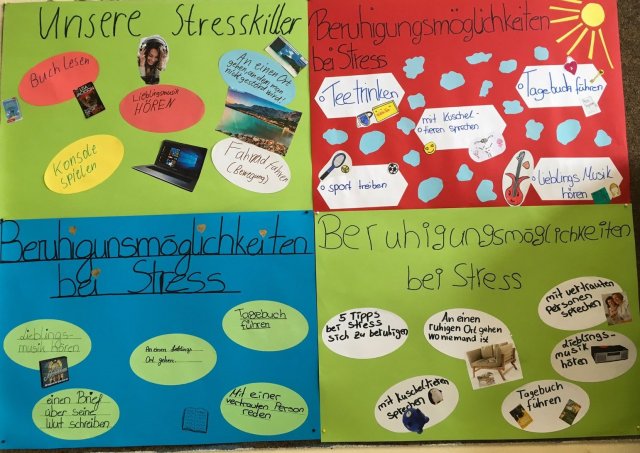 Unsere Stresskiller
Buch lesen
Lieblingsmusik
HÖREN
An einen Ort
gehen, an dem man
nicht gestört wird!
Konsole
spielen
Fahrrad fahren
(Bewegung)
Beruhigungsmöglichkeiten
bei Stress
Tee trinken
Tagebuch führen
mit Kuschel-
tieren sprechen
sport treiben
Lieblings Musik
hören
Beruhigunsmöglichkeiten
bei Stress
Lieblings-
musik hören
Tagebuch
führen
An einen Lieblings
Ort gehen
einen Brief
über seine
Wut schreiben
Mit einer
vertrauten Person
reden
Beruhigungsmöglichkeiten
bei Stress
5 Tipps
bei Stress
sich zu beruhigen
An einen
ruhigen Ort gehen
wo niemand ist
mit vertrauten
Personen
sprechen
Lieblings-
musik
hören
mit kuscheltieren
sprechen
Tagebuch
führen